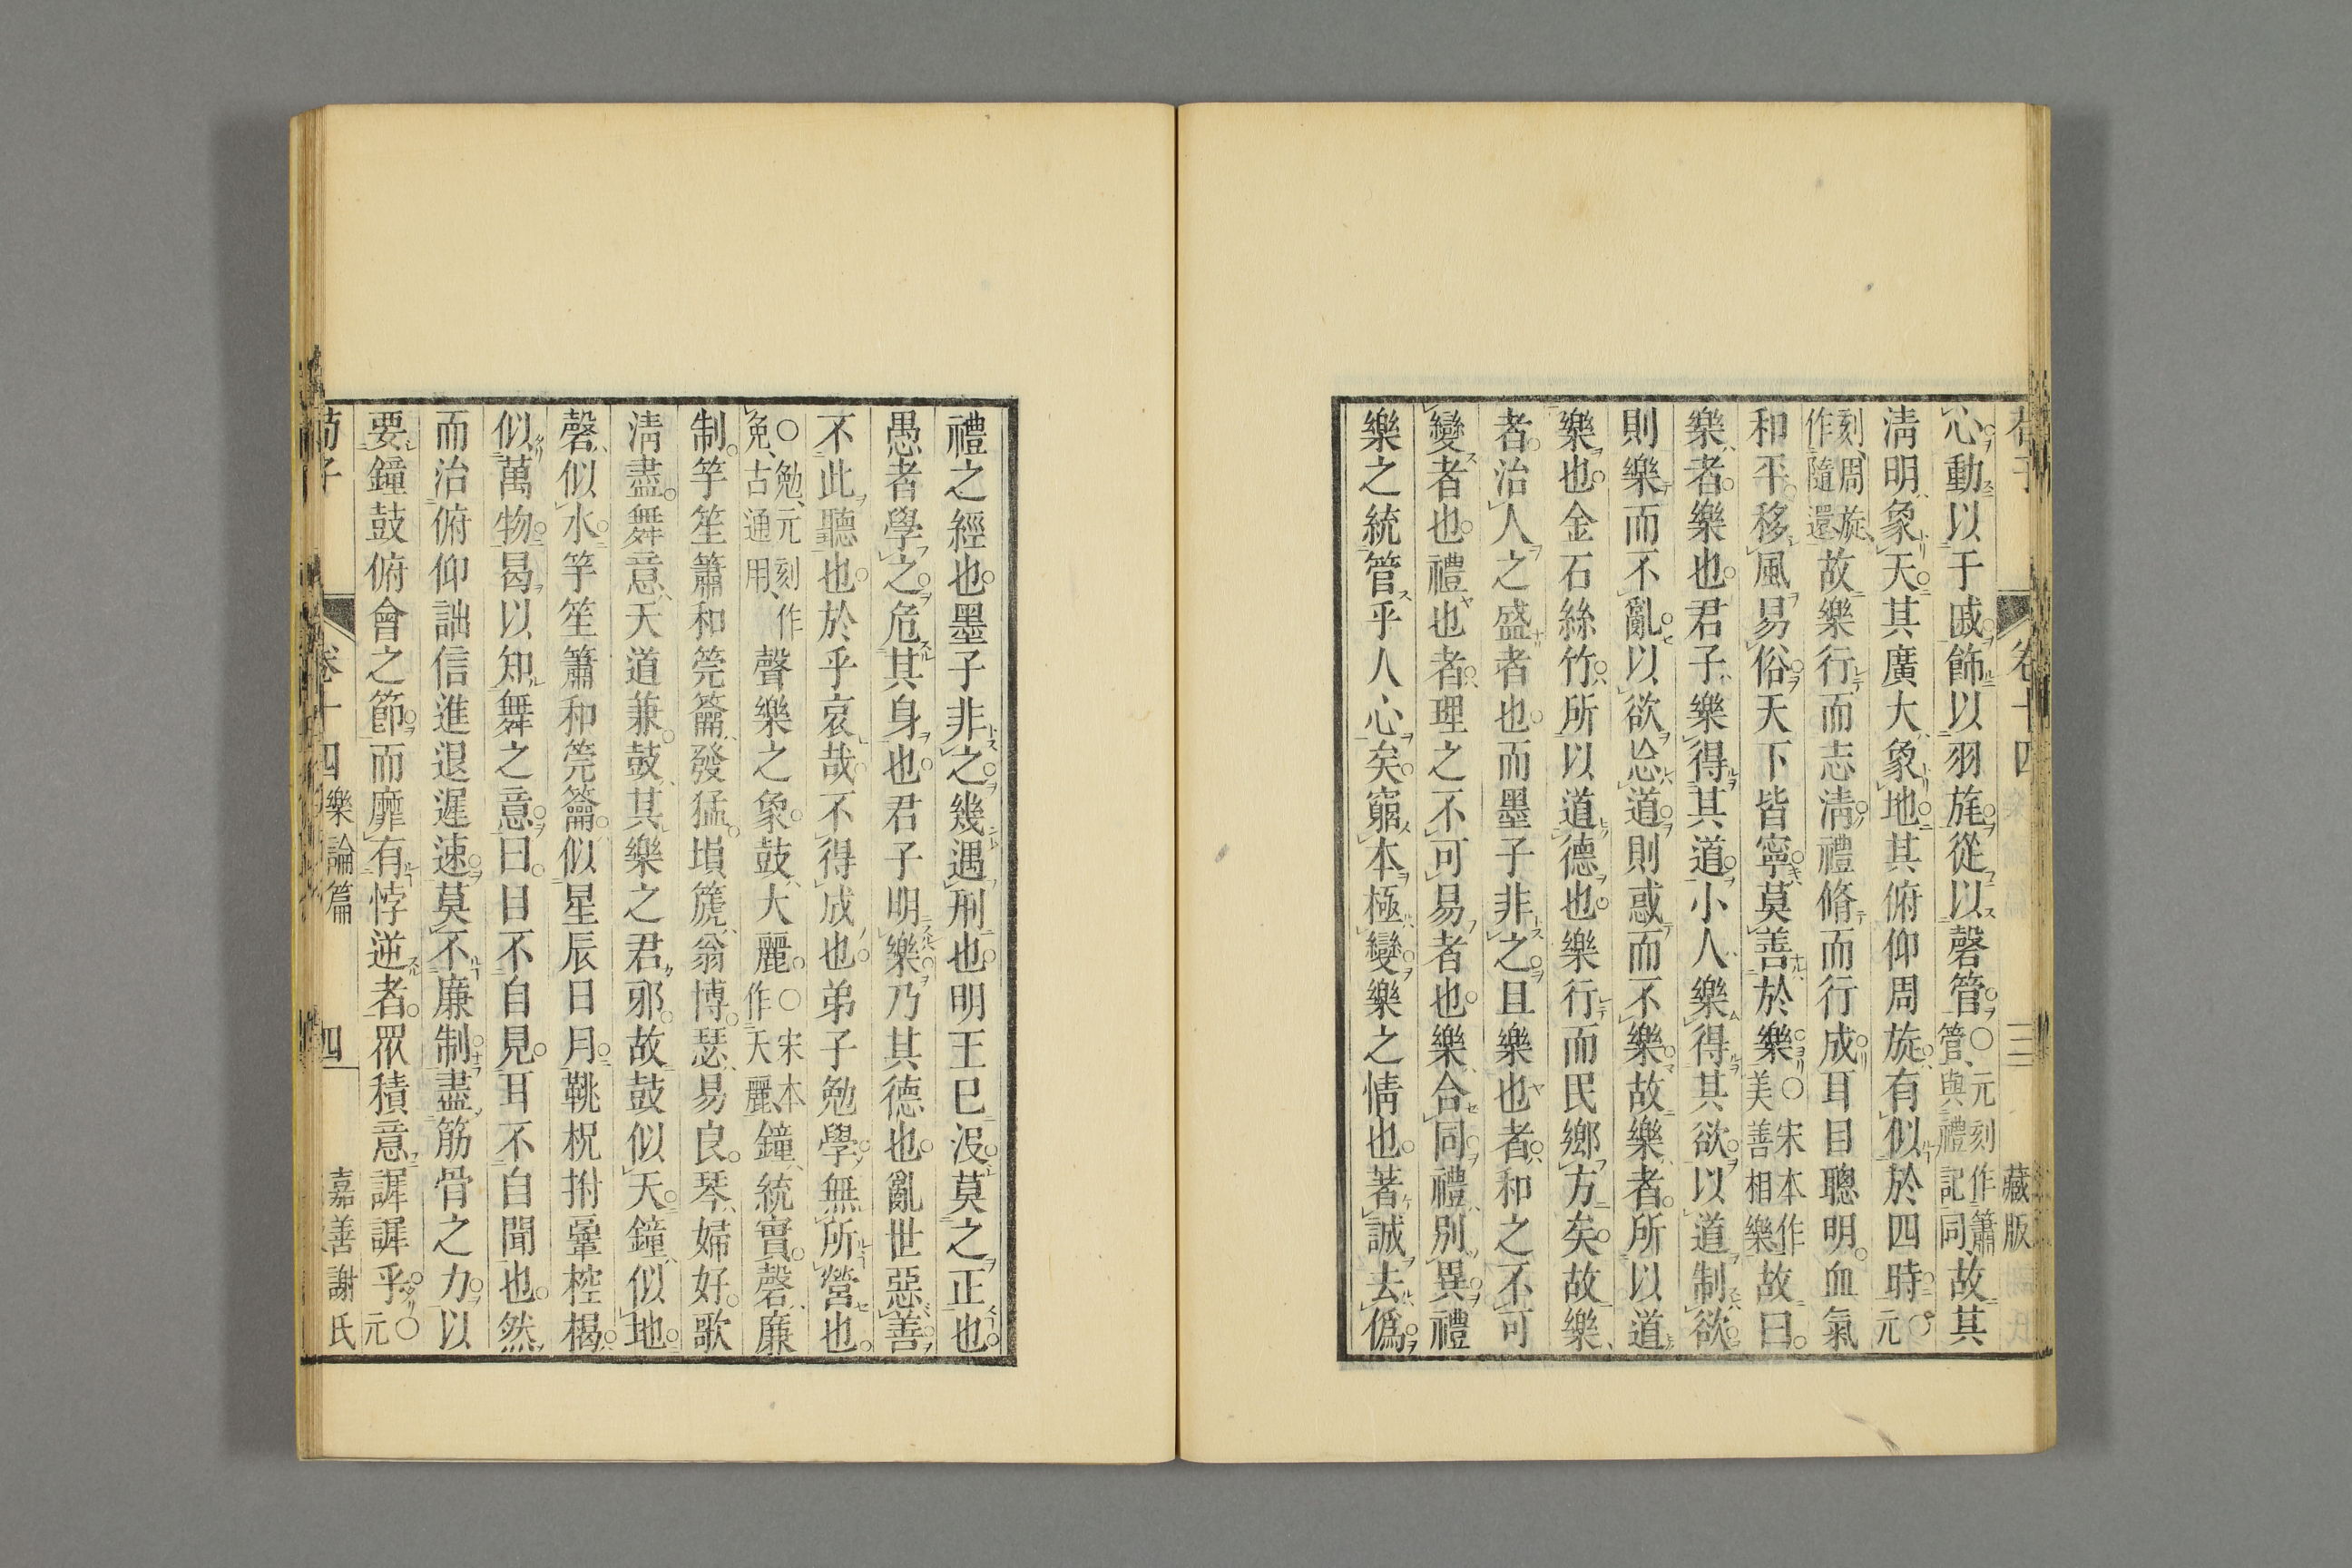 荀子 卷十四 三 藏版
心動以于戚飾以羽旄從以磬管○元刻作簫管與禮記同故其
淸明象天其廣大象地其俯仰周旋有似於四時○元
刻周旋作隨還故樂行而志淸禮脩而行成耳目聰明血氣
和平移風易俗天下皆寧莫善於樂○宋本作美善相樂故曰
樂者樂也君子樂得其道小人樂得其欲以道制欲
則樂而不亂以欲忘道則惑而不樂故樂者所以道
樂也金石絲竹所以道德也樂行而民鄕方矣故樂
者治人之盛者也而墨子非之且樂也者和之不可
變者也禮也者理之不可易者也樂合同禮別異禮
樂之統管乎人心矣窮本極變樂之情也著誠去僞
禮之經也墨子非之幾遇刑也明王已沒莫之正也
愚者學之危其身也君子明樂乃其德也亂世惡善
不此聽也於乎哀哉不得成也弟子勉學無所營也
○勉元刻作免古通用聲樂之象鼓大麗○宋本作天麗鐘統實磬廉
制竽笙簫和筦籥發猛塤篪翁博瑟易良琴婦好歌
淸盡舞意天道兼鼓其樂之君邪故鼓似天鐘似地
磬似水竽笙簫和筦籥似星辰日月鞉柷拊鞷椌楬
似萬物曷以知舞之意曰目不自見耳不自聞也然
而治俯仰詘信進退遲速莫不廉制盡筋骨之力以
要鐘鼓俯會之節而靡有悖逆者眾積意謘謘乎○元
荀子 卷十四 樂論篇 四 嘉善謝氏